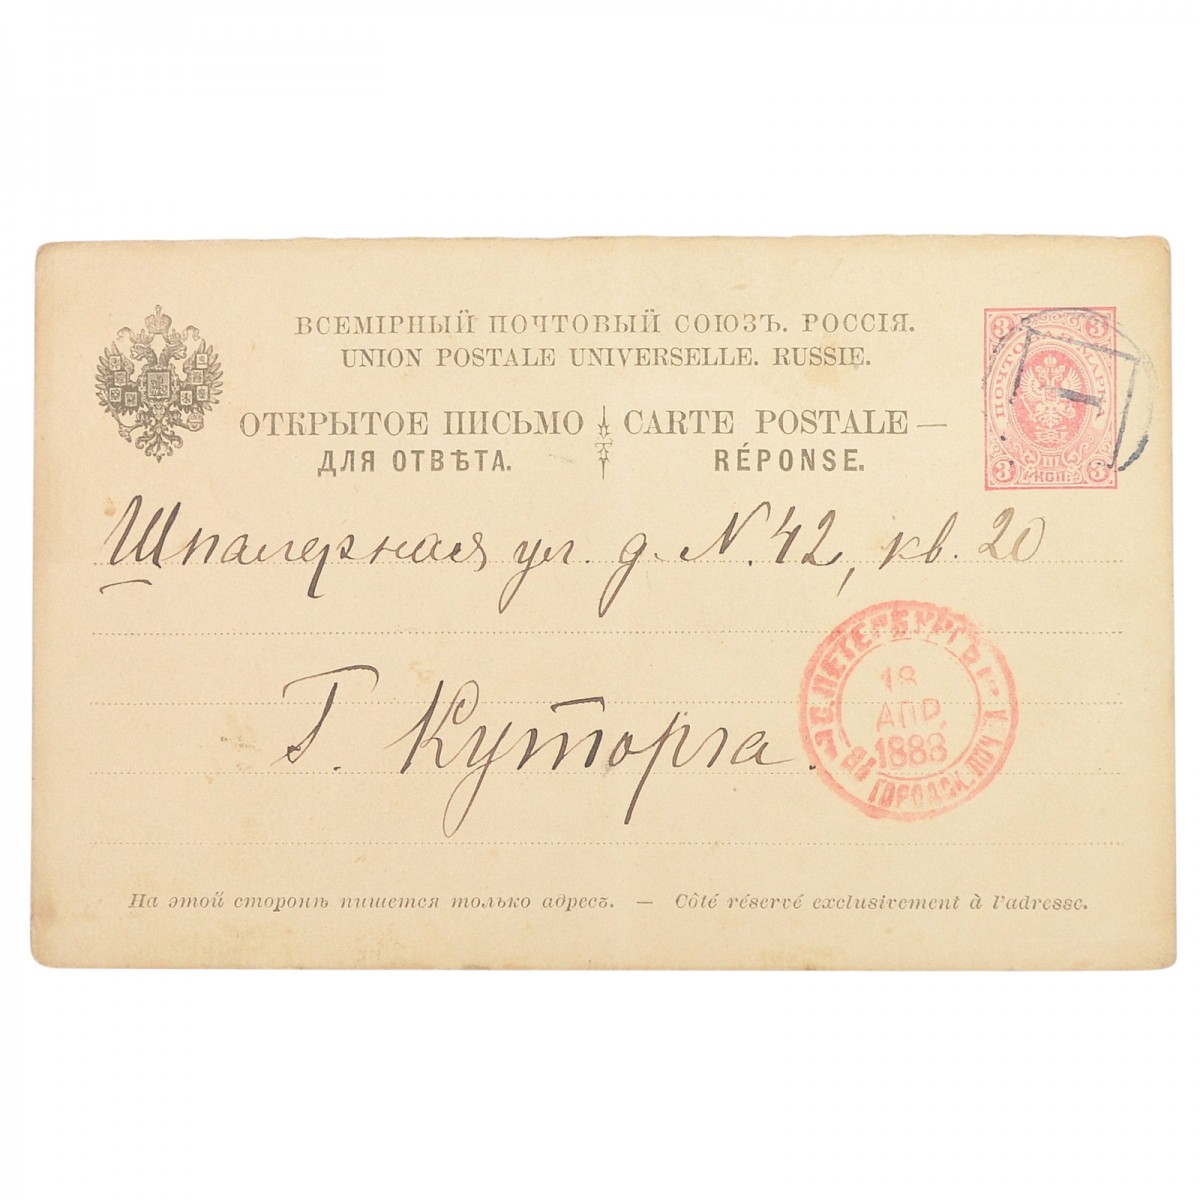 ВСЕМІРНЫЙ ПОЧТОВЫЙ СОЮЗЪ. РОССІЯ.
UNION POSTALE UNIVERSELLE. RUSSIE.
ОТКРЫТОЕ ПИСЬМО CARTE POSTALE —
ДЛЯ ОТВѢТА. RÉPONSE.
3 3
ПОЧТОВАЯ МАРКА
III
3 КОП. 3
1
Шпалерная ул. д. N. 42, кв. 20
Г. Куторга.
С. ПЕТЕРБУРГЪ
18
АПР.
1888
ГОРОДСК. ПОЧ
На этой сторонѣ пишется только адресъ. — Côté réservé exclusivement à l'adresse.